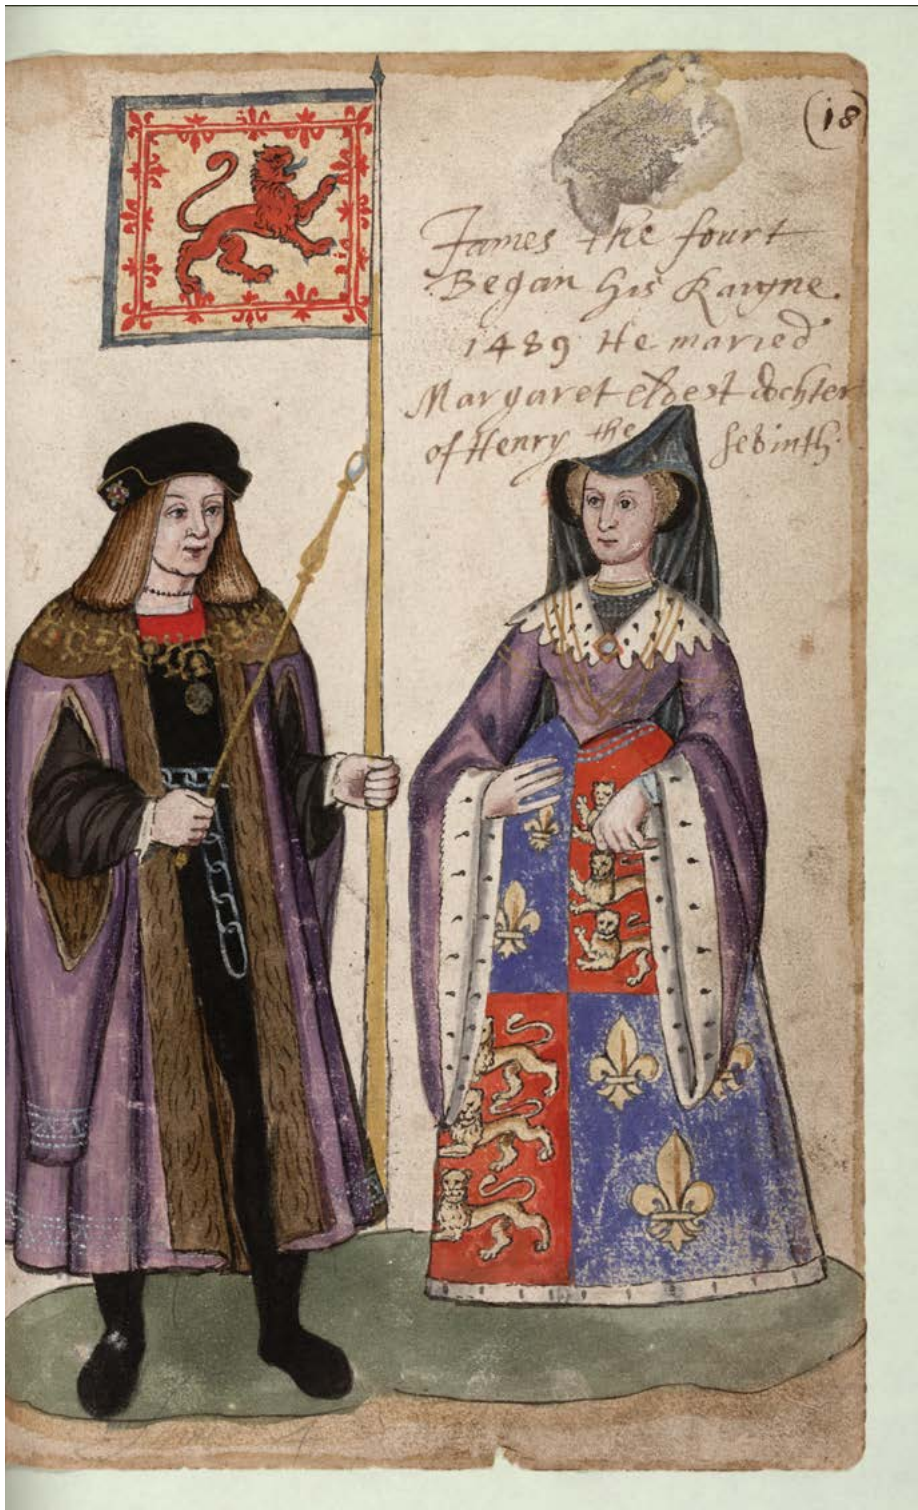 (18)
James the fourt
Began his Raigne
1489 He maried
Margaret eldest dochter
of Henry the sevinth